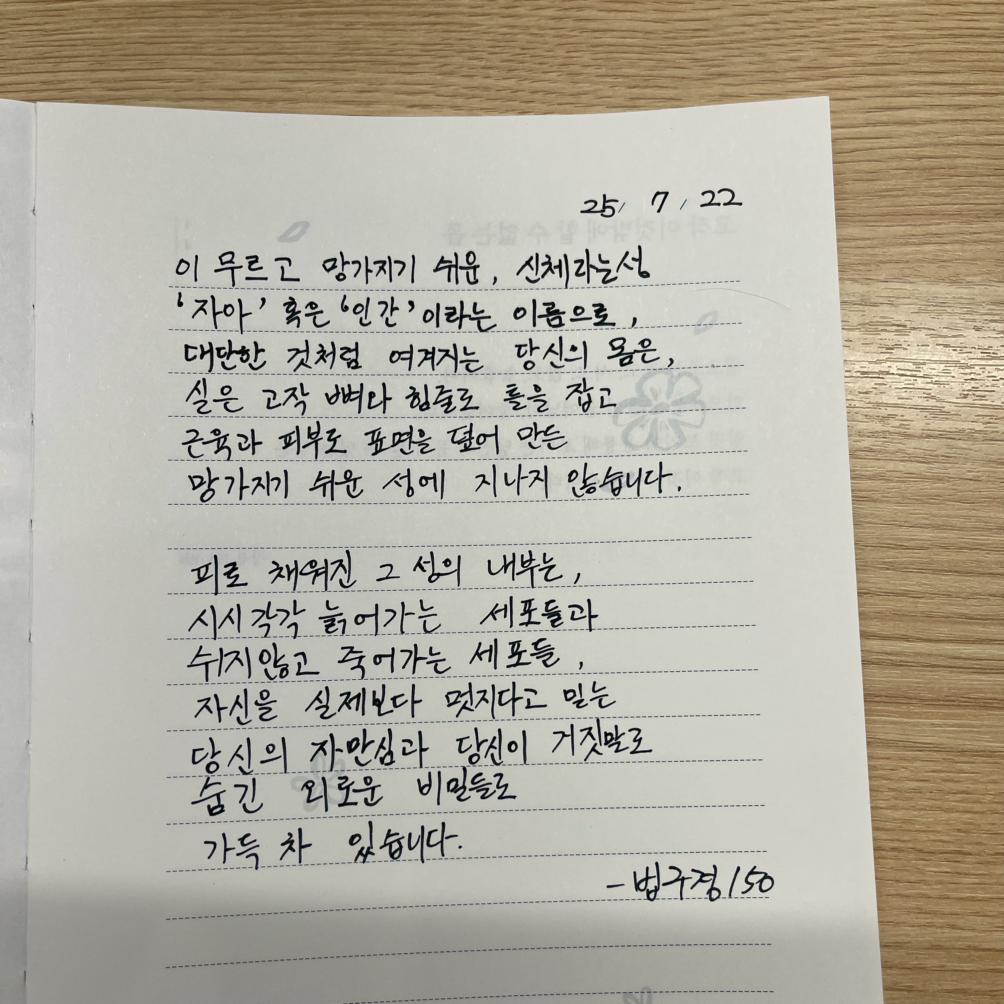 25, 7, 22
이 무르고 망가지기 쉬운, 신체라는성
'자아' 혹은 '인간'이라는 이름으로,
대단한 것처럼 여겨지는 당신의 몸은,
실은 고작 뼈와 힘줄로 틀을 잡고
근육과 피부로 표면을 덮어 만든
망가지기 쉬운 성에 지나지 않습니다.
피로 채워진 그 성의 내부는,
시시각각 늙어가는 세포들과
쉬지않고 죽어가는 세포들,
자신을 실제보다 멋지다고 믿는
당신의 자만심과 당신이 거짓말로
숨긴 외로운 비밀들로
가득 차 있습니다.
- 법구경 150